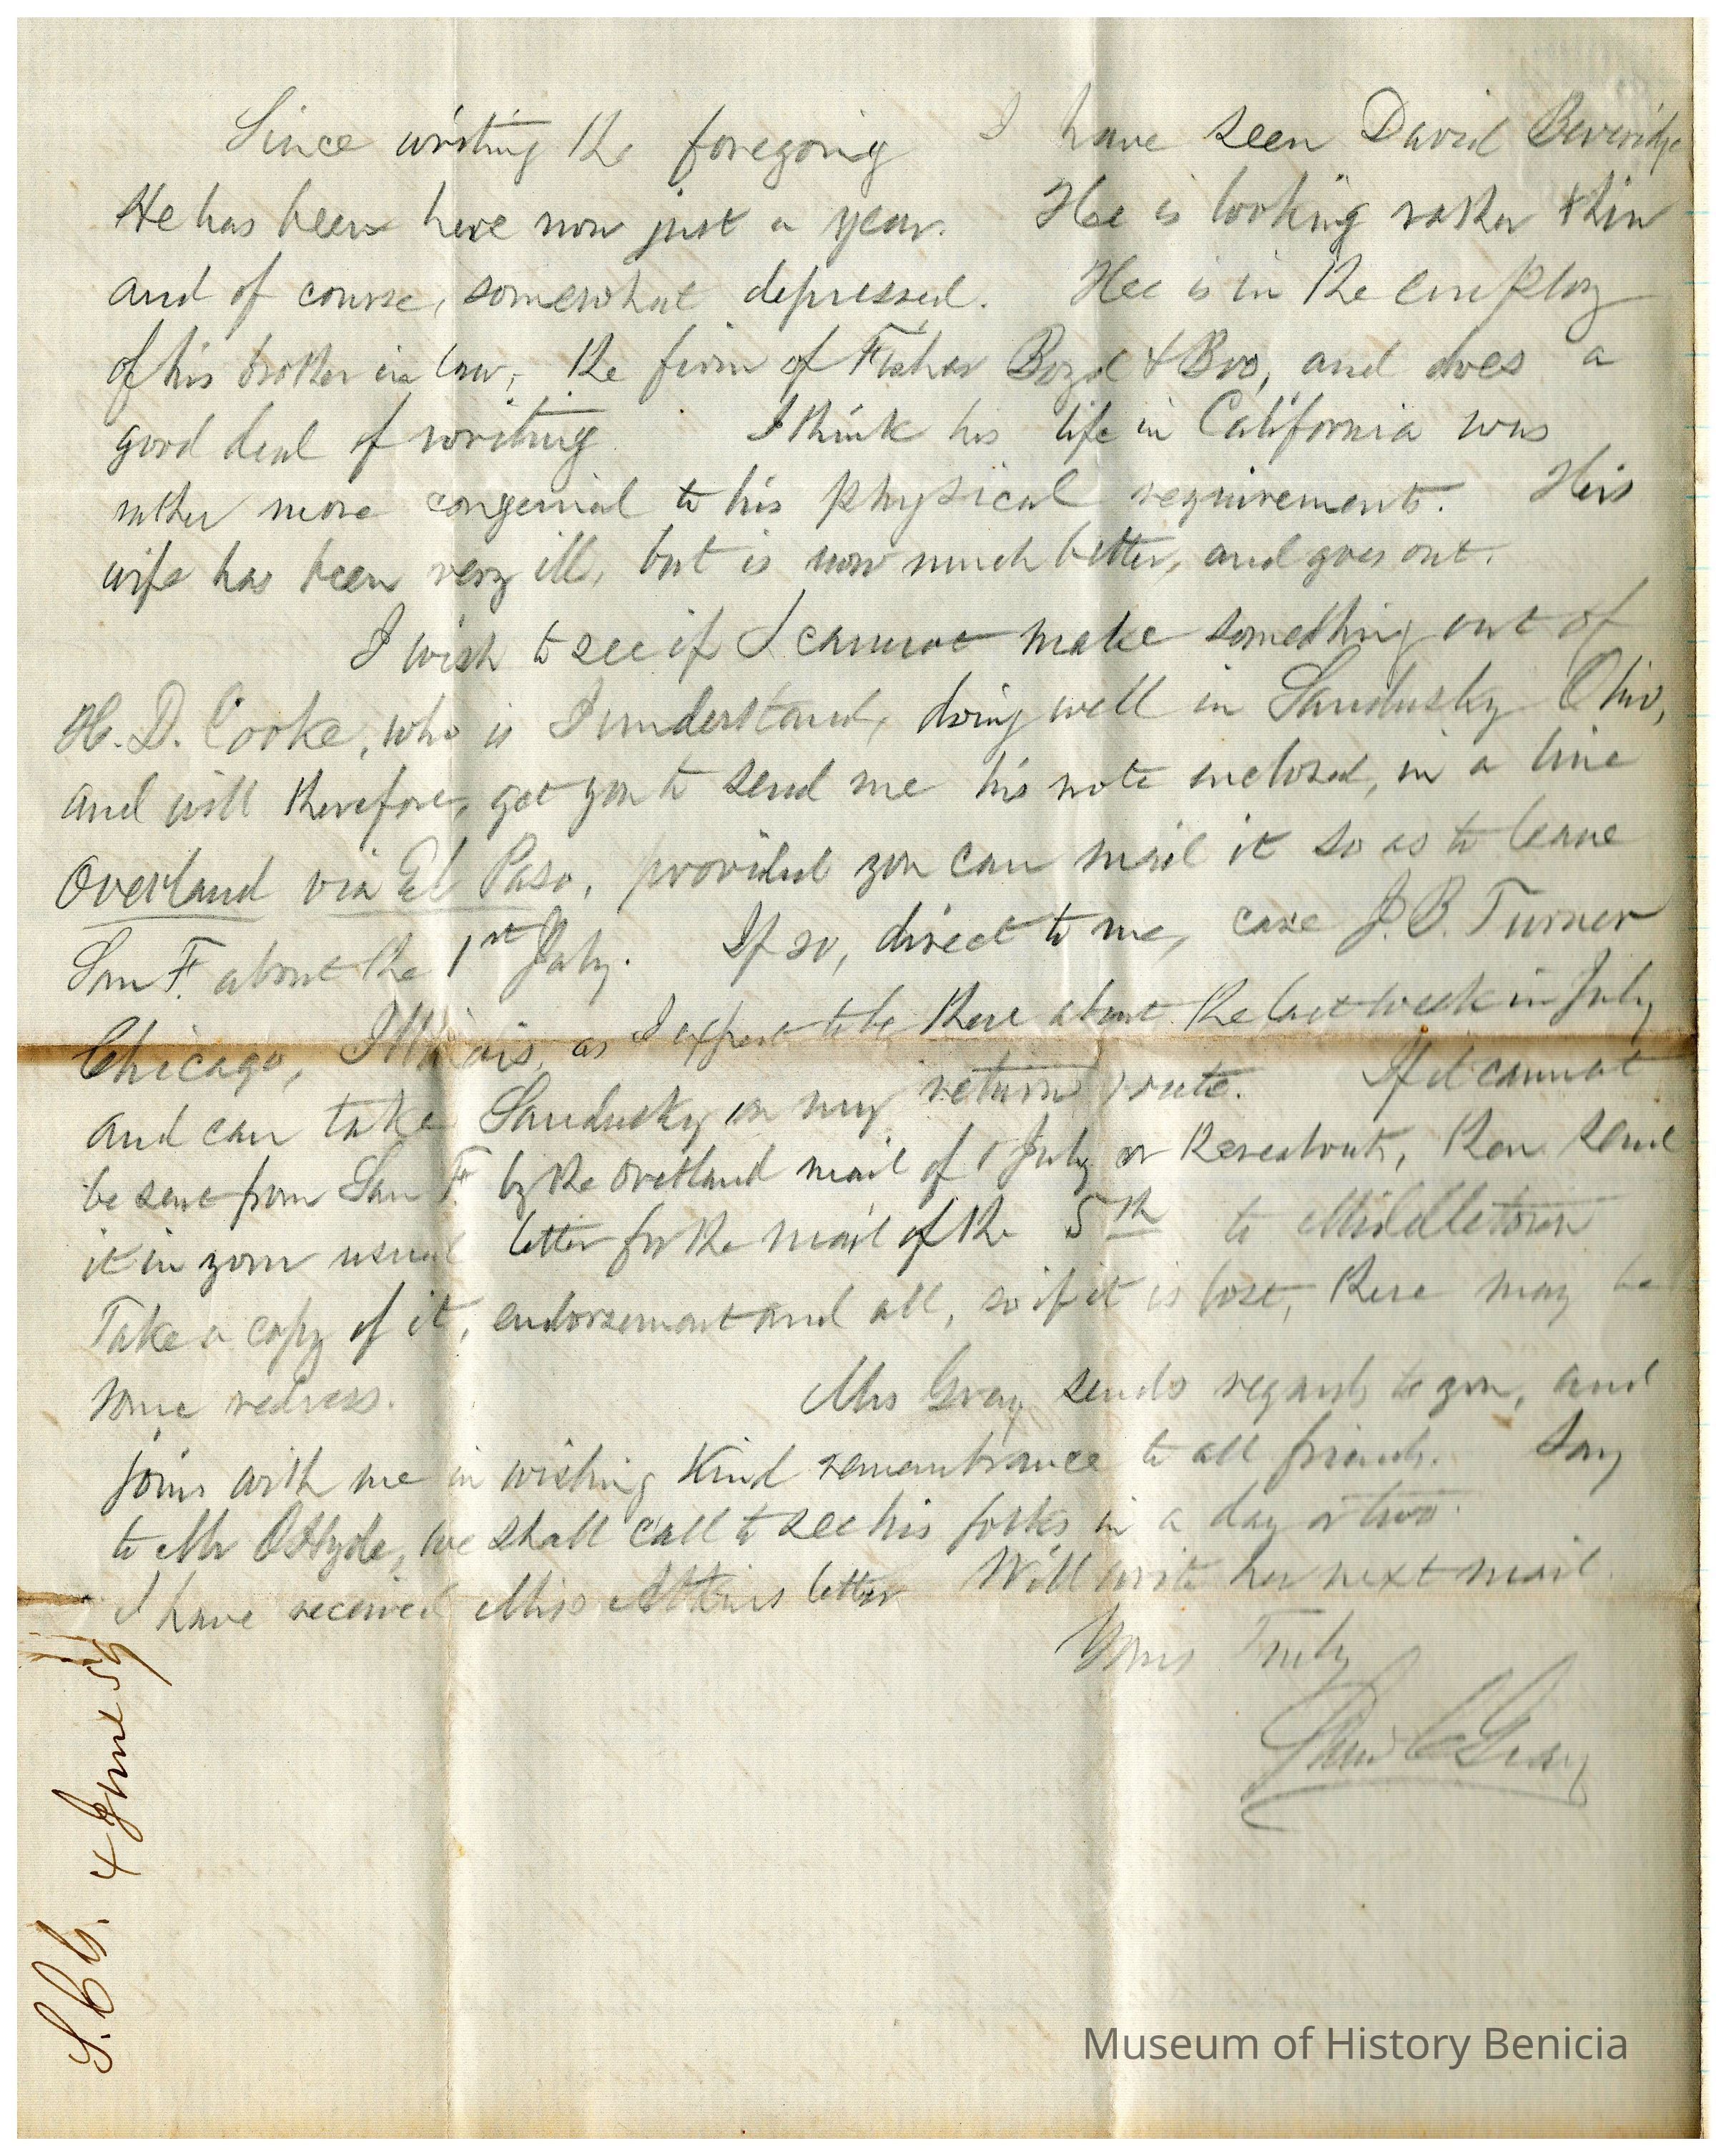 Since writing the foregoing I have seen David Beveridge
He has been here now just a year. Hee is looking rather thin
and of course, somewhat depressed. Hee is in the employ
of his brother in law, the firm of Fisher Boyd & Bro, and does a
good deal of writing I think his life in California was
rather more congenial to his physical requirements. His
wife has been very ill, but is now much better, and goes out.
I wish to see if I cannot make something out of
H. D. Cooke, who is I understand, doing well in Sandusky Ohio,
and will therefore, get you to send me his note enclosed, in a line
Overland via El Paso, provided you can mail it so as to leave
San F. about the 1st July. If so, direct to me, care J. B. Turner
Chicago, Illinois, as I expect to be there about the last week in July
and can take Sandusky on my return route. If it cannot
be sent from San F. by the overland mail of 1 July or thereabouts, then send
it in your usual letter for the mail of the 5th to Middletown
Take a copy of it, endorsement and all, so if it is lost, there may be
some redress. Mrs Gray sends regards to you, and
joins with me in wishing kind remembrance to all friends. Say
to Mr Hyde, we shall call to see his folks in a day or two.
I have received Miss Atkins letter Will write her next mail.
Yours Truly
Saml C Gray
S. C. G. 4 June 59
Museum of History Benicia